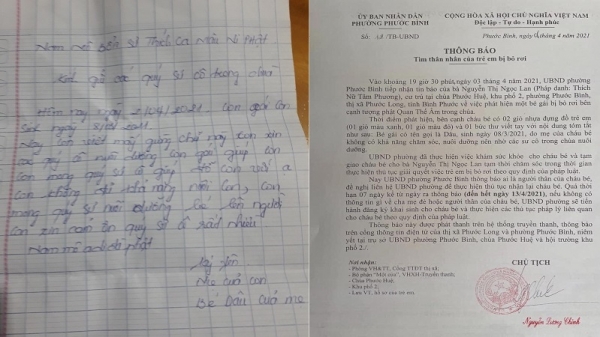 Nam mô Bổn Sư Thích Ca Mâu Ni Phật
Kính gởi các quý sư cô trong chùa
Hôm nay ngày 2/04/2021 con gái con
sn ngày 8/03/2021
Nay con viết mấy dòng chữ này con xin
các quý cô nuôi dưỡng con gái giúp con
Con mong quý sư cô giúp đỡ con vì
con không đủ khả năng nuôi con, con
mong quý sư nuôi dưỡng bé lên người
con xin cảm ơn quý sư cô rất nhiều
Nam mô a di đà phật
ký tên
Mẹ của con
Bé Dâu của mẹ
ỦY BAN NHÂN DÂN
PHƯỜNG PHƯỚC BÌNH
Số /TB-UBND
CỘNG HÒA XÃ HỘI CHỦ NGHĨA VIỆT NAM
Độc lập - Tự do - Hạnh phúc
Phước Bình, ngày tháng 4 năm 2021
THÔNG BÁO
Tìm thân nhân của trẻ em bị bỏ rơi
Vào khoảng 19 giờ 30 phút, ngày 03 tháng 4 năm 2021, UBND phường
Phước Bình tiếp nhận tin báo của bà Nguyễn Thị Ngọc Lan (Pháp danh: Thích
Nữ Tâm Phương), cư trú tại chùa Phước Huệ, khu phố 2, phường Phước Bình,
thị xã Phước Long, tỉnh Bình Phước về việc phát hiện một bé gái bị bỏ rơi bên
cạnh tượng phật Quan Thế Âm trong chùa.
Thời điểm phát hiện, bên cạnh cháu bé có 02 giỏ nhựa đựng đồ trẻ em
(01 giỏ màu xanh, 01 giỏ màu đỏ) và 01 bức thư viết tay với nội dung tóm tắt
như sau: Bé gái có tên gọi là Dâu, sinh ngày 08/3/2021, do mẹ của cháu bé
không có khả năng chăm sóc, nuôi dưỡng nên nhờ các sư cô trong chùa
nuôi dưỡng.
UBND phường đã thực hiện việc khám sức khỏe cho cháu bé và tạm
giao cháu bé cho bà Nguyễn Thị Ngọc Lan tạm thời chăm sóc trong thời gian
thực hiện thủ tục giải quyết việc trẻ em bị bỏ rơi theo quy định của pháp luật.
Nay UBND phường Phước Bình thông báo ai là người thân của cháu bé,
đề nghị liên hệ UBND phường để thực hiện thủ tục nhận lại cháu bé. Quá thời
hạn 07 ngày kể từ ngày ra thông báo (đến hết ngày 13/4/2021), nếu không có
thông tin gì về cha mẹ đẻ hoặc người thân của cháu bé, UBND phường sẽ tiến
hành đăng ký khai sinh cho cháu bé và thực hiện các thủ tục pháp lý liên quan
cho cháu bé theo quy định của pháp luật.
Thông báo này được phát thanh trên hệ thống truyền thanh, thông báo
trên cổng thông tin điện tử của thị xã Phước Long và phường Phước Bình, niêm
yết tại trụ sở UBND phường Phước Bình, chùa Phước Huệ và hội trường khu
phố 2./.
Nơi nhận:
- Phòng VH&TT, Cổng TTĐT thị xã;
- Bộ phận "Một cửa", VHXH-Truyền thanh;
- Chùa Phước Huệ;
- Khu phố 2;
- Lưu VT, hồ sơ của trẻ em.
CHỦ TỊCH
Nguyễn Lương Chính